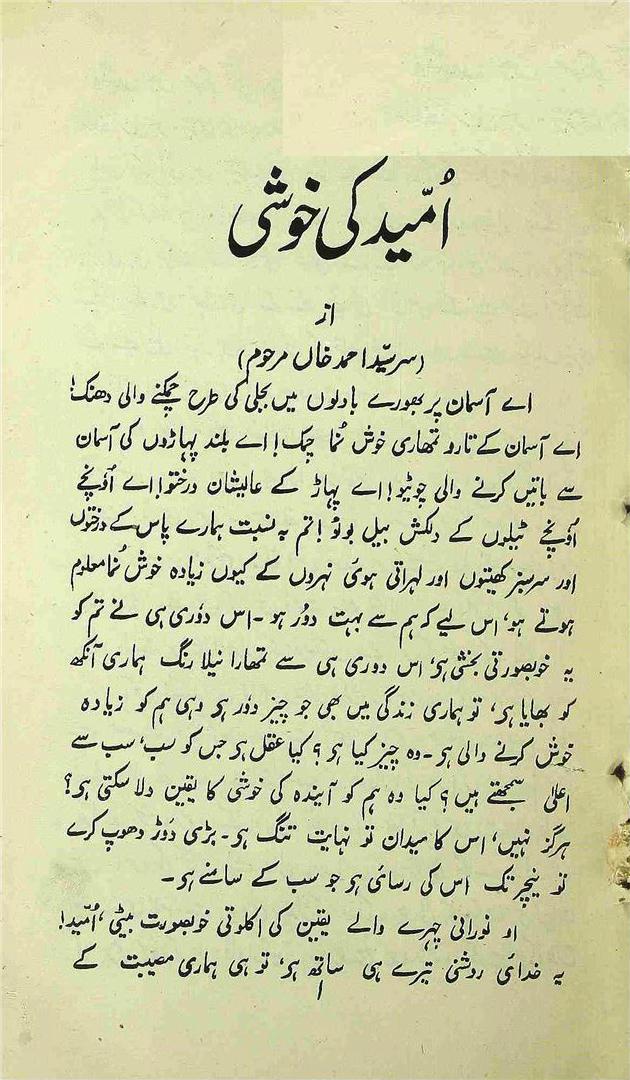 اُمّید کی خوشی
از
(سر سیّد احمد خاں مرحوم)
اے آسمان پر بھورے بادلوں میں بجلی کی طرح چمکنے والی دھنک!
اے آسمان کے تارو تمھاری خوش نُما چمک! اے بلند پہاڑوں کی آسمان
سے باتیں کرنے والی چوٹیو! اے پہاڑ کے عالیشان درختو! اے اُونچے
اُونچے ٹیلوں کے دلکش بیل بوٹو! تم بہ نسبت ہمارے پاس کے درختوں
اور سرسبز کھیتوں اور لہراتی ہوئی نہروں کے کیوں زیادہ خوش نُما معلوم
ہوتے ہو، اس لیے کہ ہم سے بہت دُور ہو ۔ اس دُوری ہی نے تم کو
یہ خوبصورتی بخشی ہی، اس دوری ہی سے تمھارا نیلا رنگ ہماری آنکھ
کو بھایا ہی، تو ہماری زندگی میں بھی جو چیز دُور ہی وہی ہم کو زیادہ
خوش کرنے والی ہی ۔ وہ چیز کیا ہی؟ کیا عقل ہی جس کو سب، سب سے
اعلیٰ سمجھتے ہیں؟ کیا وہ ہم کو آیندہ کی خوشی کا یقین دلا سکتی ہی؟
ہرگز نہیں، اس کا میدان تو نہایت تنگ ہی ۔ بڑی دَوڑ دھوپ کرے
تو نیچر تک اس کی رسائی ہی جو سب کے سامنے ہی ۔
او نورانی چہرے والے یقین کی اکلوتی خوبصورت بیٹی، اُمّید!
یہ خدائی روشنی تیرے ہی ساتھ ہی، تو ہی ہماری مصیبت کے
۱